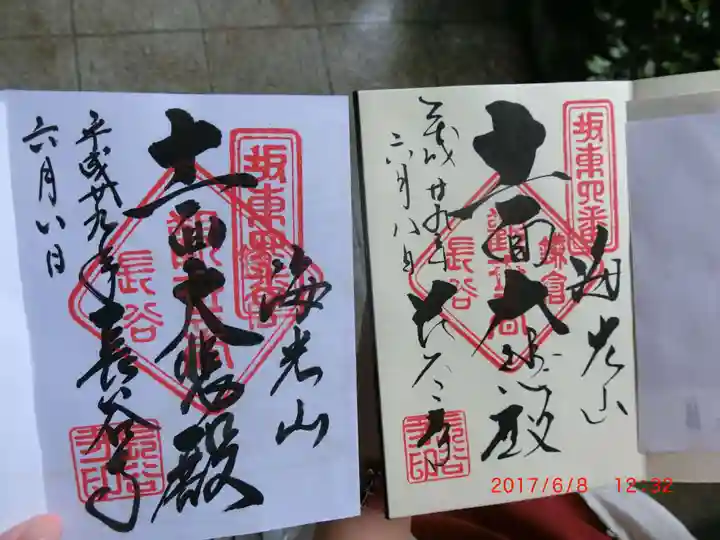 坂東四番
海光山
十一面大悲殿
平成廿九年
六月八日
長谷寺
長谷
長谷寺印
坂東四番
海光山
十一面大悲殿
平成廿九年
六月八日
長谷寺
鎌倉
長谷
長谷寺印
2017/6/8 12:32